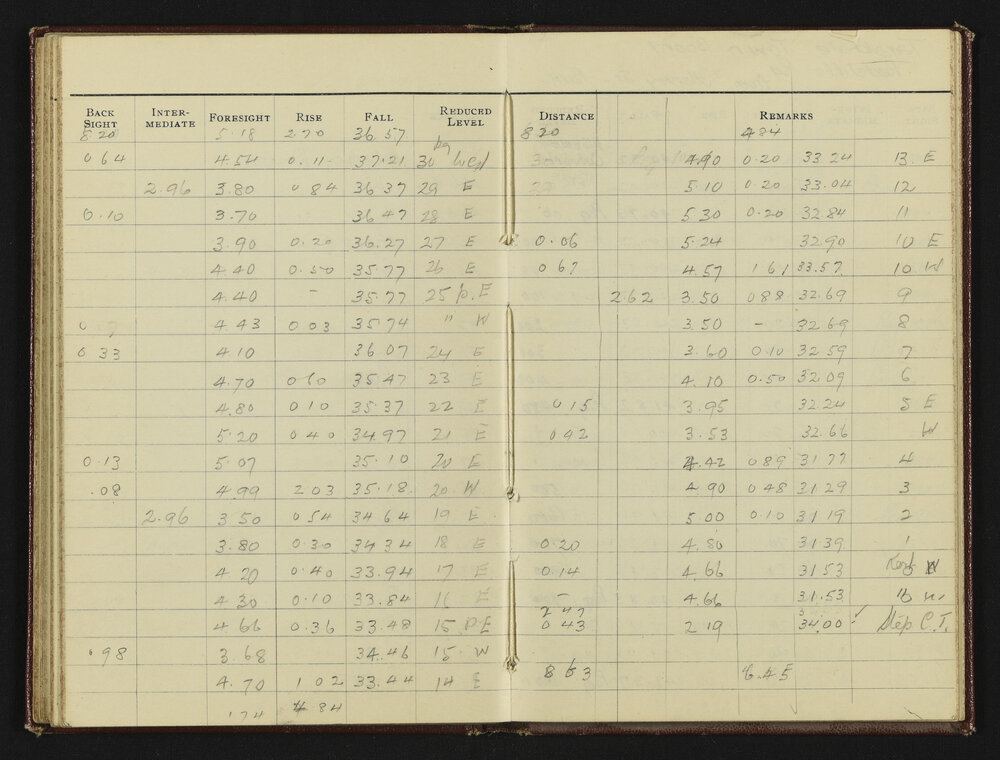 BACK SIGHT INTER-MEDIATE FORESIGHT RISE FALL REDUCED LEVEL DISTANCE REMARKS
8.20 5.18 2.70 36.57 8.20 4.84
0 64 4.54 0.11 37.21 30 4.90 0.20 33 24 13 E
2.96 3.80 0 84 36 37 29 E 5.10 0.20 33.04 12
0.10 3.70 36 47 28 E 5 30 0.20 32 84 11
3.90 0.20 36.27 27 E 0.06 5.24 32.90 10 E
4.40 0.50 35.77 26 E 0 67 4.57 1 61 33.57 10 W
4.40 - 35.77 25 p.E 2.62 3.50 0 88 32.69 9
4.43 0 03 35.74 " W 3.50 - 32 69 8
0 33 4.10 36 07 24 E 3.60 0.10 32 59 7
4.70 0 60 35.47 23 E 4.10 0.50 32.09 6
4.80 0 10 35.37 22 E 0 15 3.95 32.24 5 E
5.20 0 40 34.97 21 E 0 42 3.53 32.66 W
0.13 5.07 35.10 20 E 4.42 0 89 31 77 4
.08 4.99 2 03 35.18 20 W 4 90 0 48 31.29 3
2.96 3 50 0 54 34 64 19 E 5.00 0.10 31 19 2
3.80 0.30 34 34 18 E 0.20 4.80 31 39 1
4 20 0.40 33.94 17 E 0.14 4.66 31 53 W
4 30 0.10 33.84 16 E - 4.66 31.53
4 66 0.36 33.48 15 P.E 2 47 0 43 2 19 34.00 ✓ Step C.T.
.98 3.68 34.46 15 W
4.70 1 02 33.44 14 E 8 63 8.45
.74 4 84